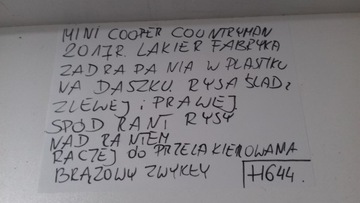 MINI COOPER COUNTRYMAN
2017R. LAKIER FABRYKA
ZADRAPANIA W PLASTIKU
NA DASZKU. RYSA ŚLAD
Z LEWEJ i PRAWEJ
SPÓD RANT RYSY
NAD RANTEM
RACZEJ do PRZELAKIEROWANA
BRĄZOWY ZWYKŁY H644.